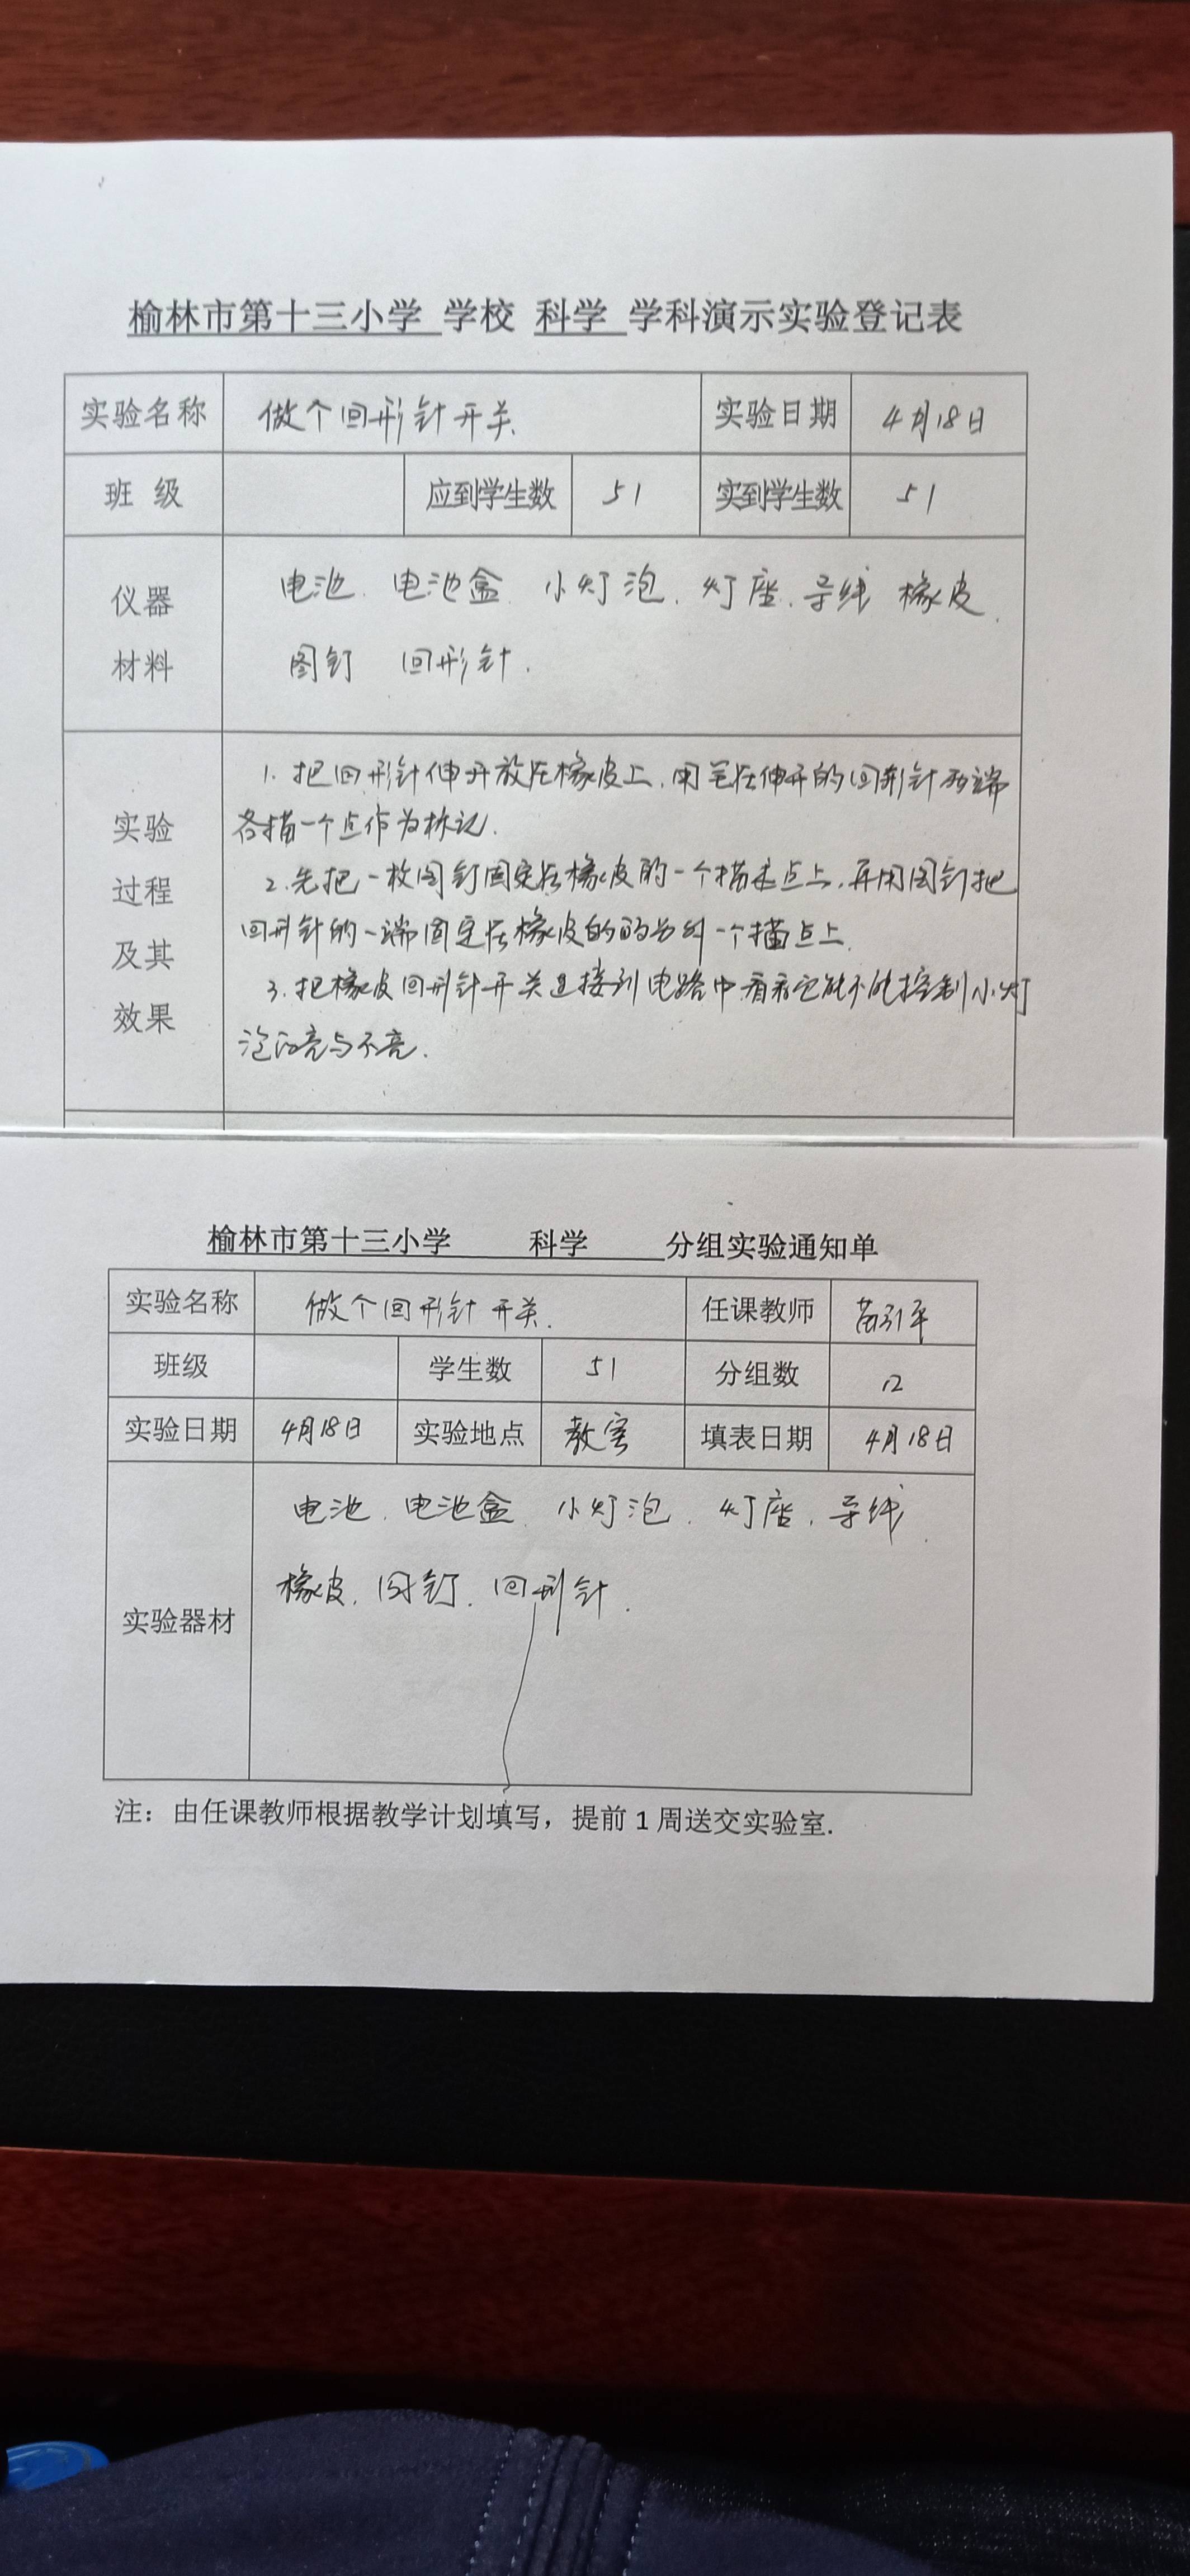 榆林市第十三小学 学校 科学 学科演示实验登记表
实验名称 做个回形针开关. 实验日期 4月18日
班 级 应到学生数 51 实到学生数 51
仪器材料 电池. 电池盒. 小灯泡. 灯座. 导线 橡皮.
图钉 回形针.
实验过程及其效果
1. 把回形针伸开放在橡皮上. 用笔在伸开的回形针两端
各描一个点作为标记.
2. 先把一枚图钉固定在橡皮的一个描点上. 再用图钉把
回形针的一端固定在橡皮的另外一个描点上.
3. 把橡皮回形针开关连接到电路中. 看看它能不能控制小灯
泡的亮与不亮.
榆林市第十三小学 科学 分组实验通知单
实验名称 做个回形针开关. 任课教师
班级 学生数 51 分组数 12
实验日期 4月18日 实验地点 教室 填表日期 4月18日
实验器材 电池. 电池盒. 小灯泡. 灯座. 导线.
橡皮. 图钉. 回形针.
注：由任课教师根据教学计划填写，提前1周送交实验室.